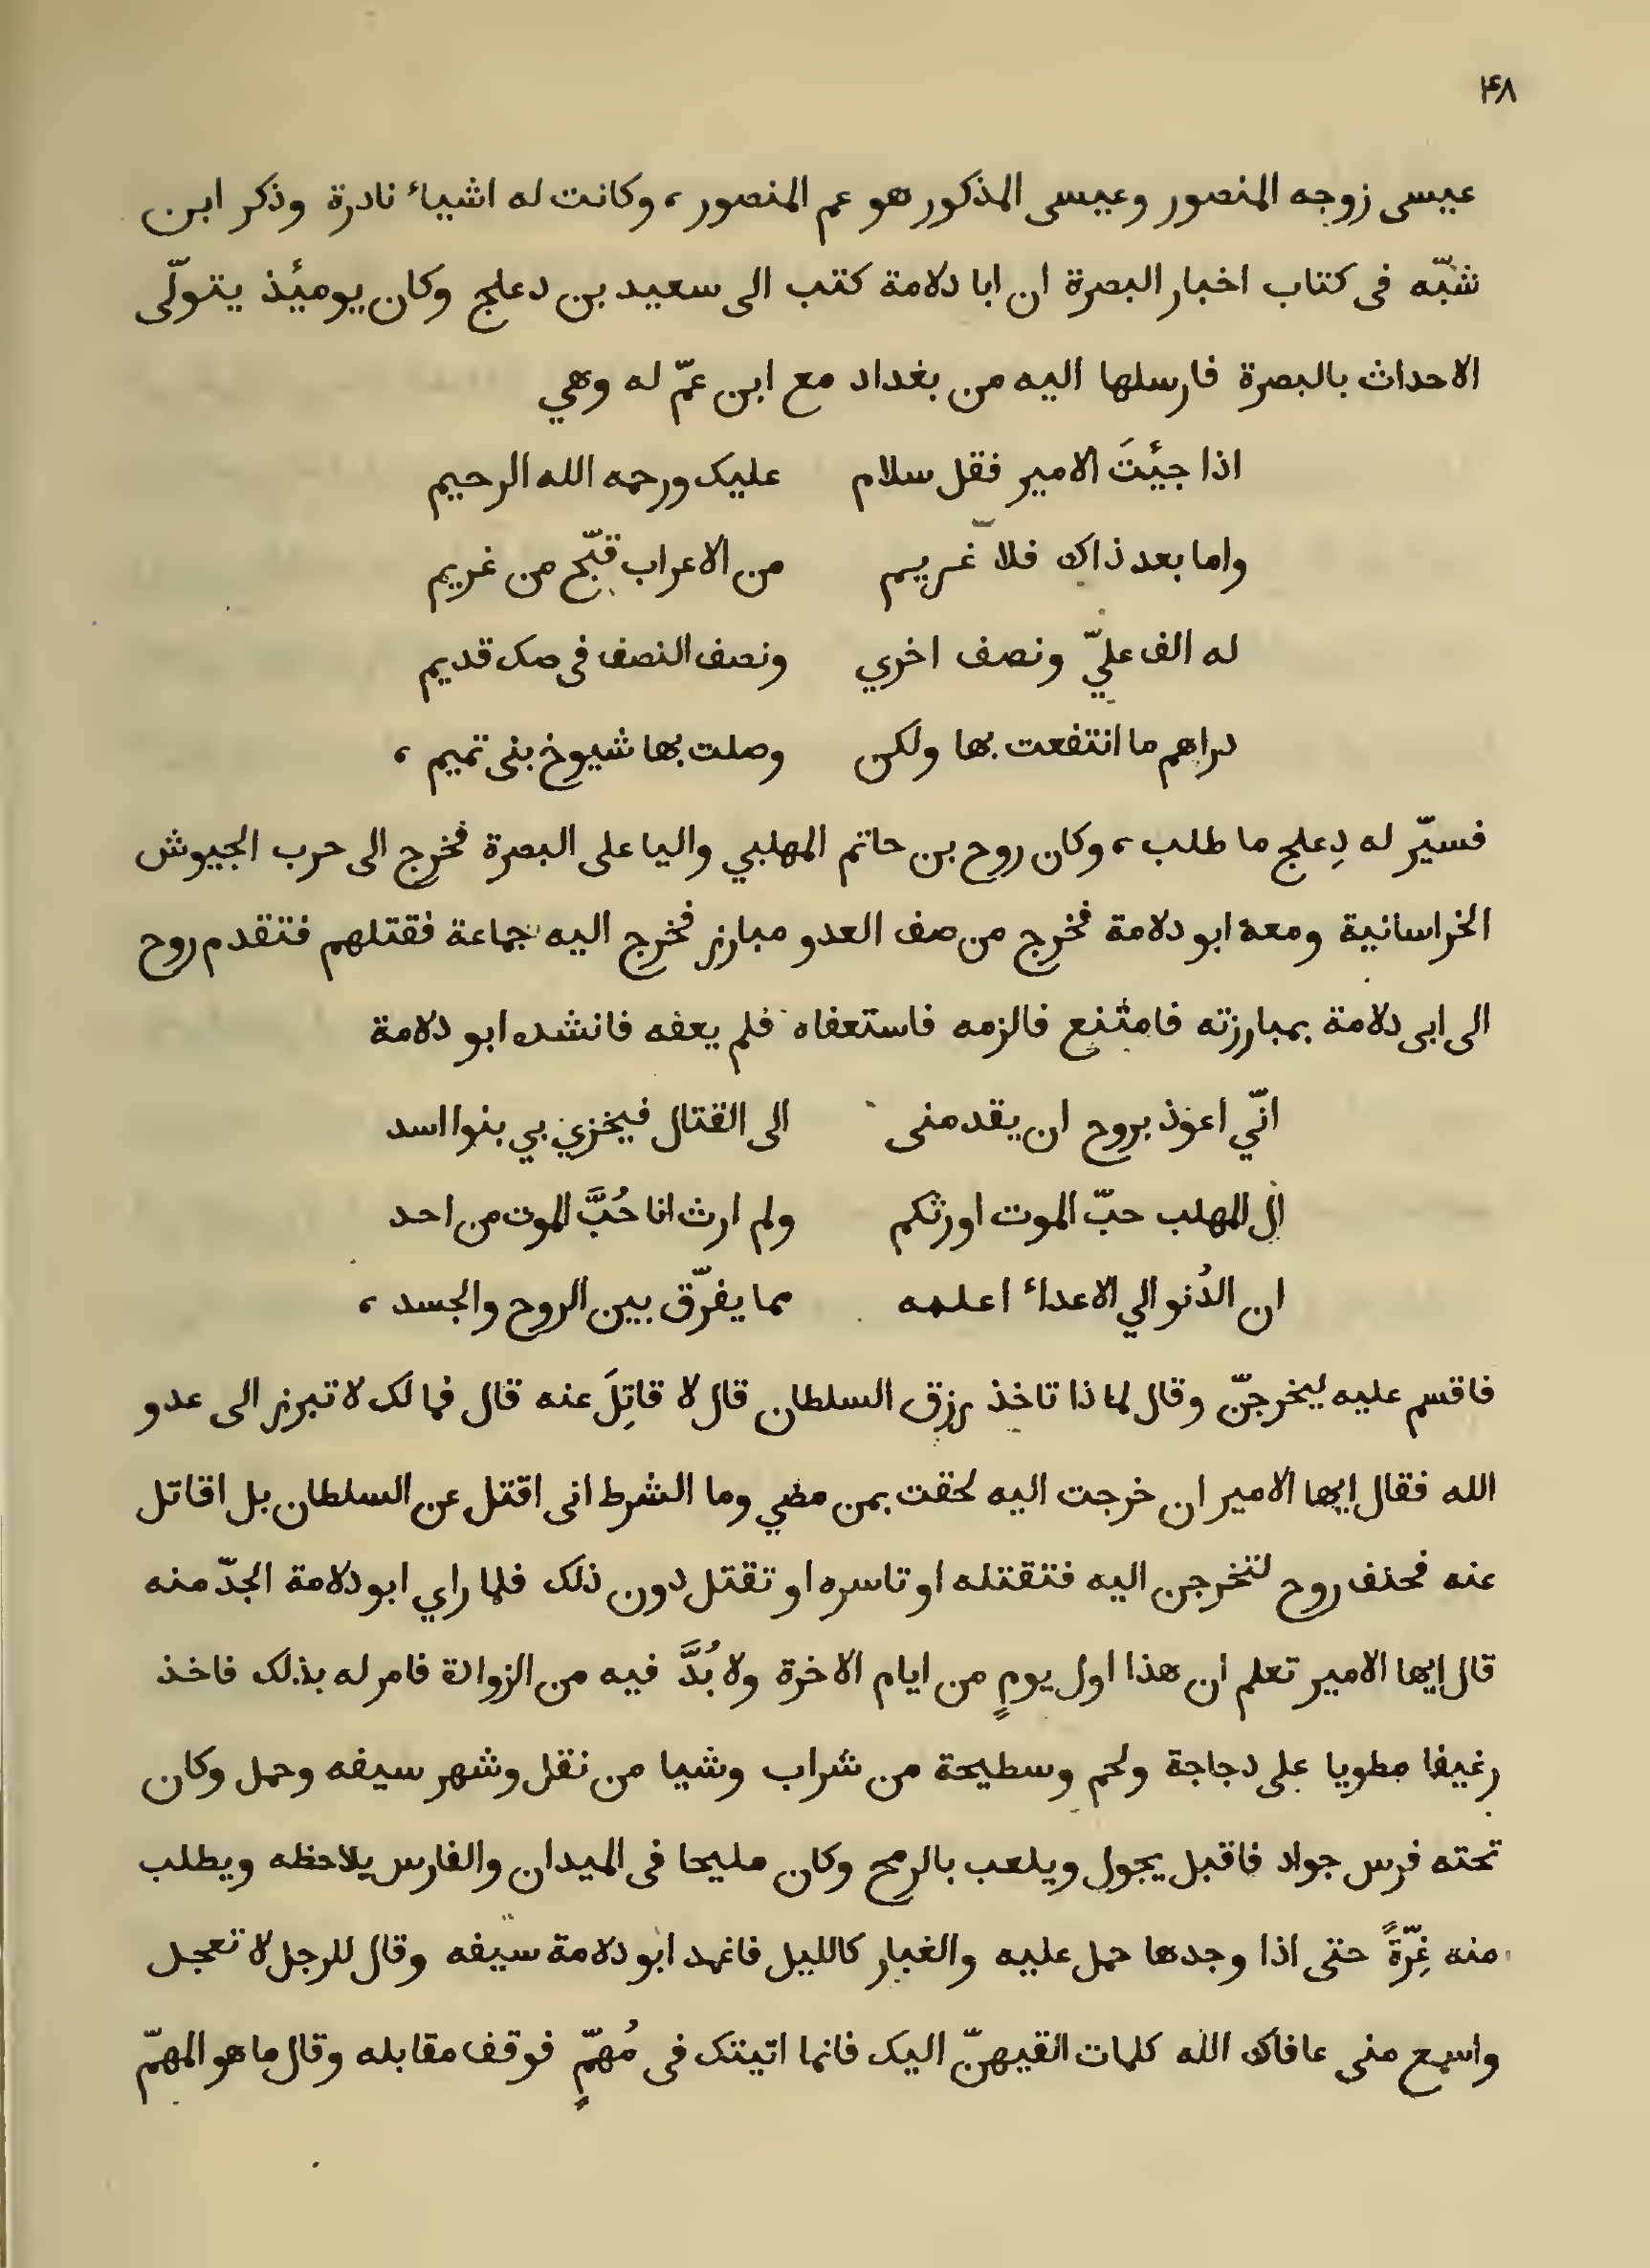 ۴۸
عيسى زوجه المنصور وعيسى المذكور هو عم المنصور، وكانت له اشياء نادرة وذكر ابن
شبّه فى كتاب اخبار البصرة ان ابا دلامة كتب الى سعيد بن دعلج وكان يومئذ يتولّى
الاحداث بالبصرة فارسلها اليه من بغداد مع ابن عمّ له وهي
اذا جئتَ الامير فقل سلام عليك ورحمه الله الرحيم
واما بعد ذاك فلا غريم من الاعراب قبّح من غريم
له الف عليّ ونصف اخري ونصف النصف فى صك قديم
دراهم ما انتفعت بها ولكن وصلت بها شيوخ بنى تميم،
فسيّر له دِعلج ما طلب، وكان روح بن حاتم المهلبي واليا على البصرة فخرج الى حرب الجيوش
الخراسانية ومعه ابو دلامة فخرج من صف العدو مبارز فخرج اليه جماعة فقتلهم فتقدم روح
الى ابى دلامة بمبارزته فامتنع فالزمه فاستعفاه فلم يعفه فانشده ابو دلامة
انّي اعوذ بروح ان يقدمنى الى القتال فيخزي بي بنوا اسد
ال المهلب حبّ الموت اورثكم ولم ارث انا حُبَّ الموت من احد
ان الدُنو الي الاعداء اعلمه مما يفرّق بين الروح والجسد،
فاقسم عليه ليخرجنّ وقال لماذا تاخذ رزق السلطان قال لا قاتِلَ عنه قال فما لك لا تبرز الى عدو
الله فقال ايها الامير ان خرجت اليه لحقت بمن مضي وما الشرط انى اقتل عن السلطان بل اقاتل
عنه فحلف روح لتخرجن اليه فتقتله او تاسره او تقتل دون ذلك فلما راي ابو دلامة الجدّ منه
قال ايها الامير تعلم ان هذا اول يومٍ من ايام الاخرة ولا بُدَّ فيه من الزوادة فامر له بذلك فاخذ
رغيفا مطويا على دجاجة ولحم وسطيحة من شراب وشيا من نقل وشهر سيفه وحمل وكان
تحته فرس جواد فاقبل يجول ويلعب بالرمح وكان مليحا فى الميدان والفارس يلاحظه ويطلب
منه غِرّةً حتى اذا وجدها حمل عليه والغبار كالليل فاغمد ابو دلامة سيفه وقال للرجل لا تعجل
واسمع منى عافاك الله كلمات القيهنّ اليك فانما اتيتك فى مُهمّ فوقف مقابله وقال ما هو المهمّ